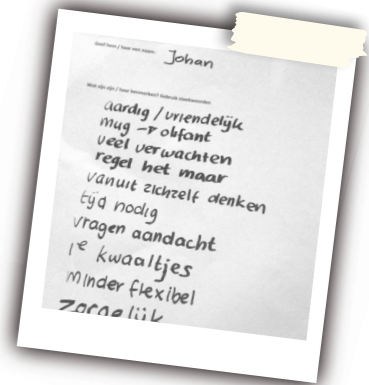 Geef hem / haar een naam: Johan
Wat zijn zijn / haar kenmerken? Gebruik steekwoorden
aardig / vriendelijk
mug → olifant
veel verwachten
regel het maar
vanuit zichzelf denken
tijd nodig
vragen aandacht
1e kwaaltjes
minder flexibel
zorgelijk